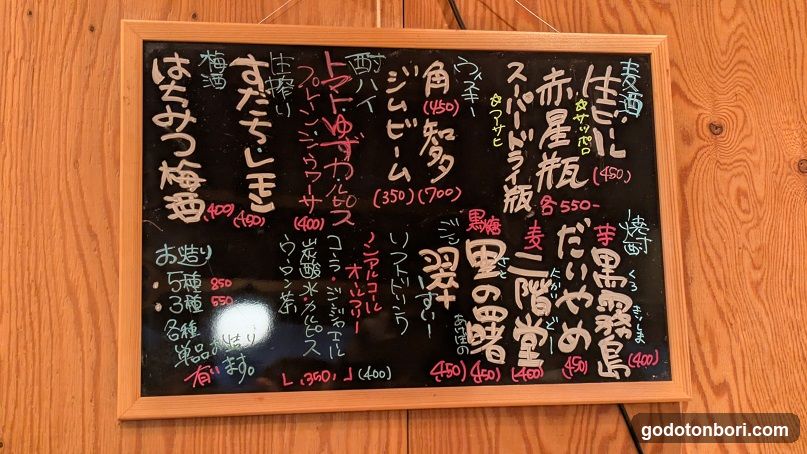 麦酒
生ビール
(450)
赤星瓶
☆サッポロ
スーパードライ瓶
☆アサヒ
各550-
ウィスキー
角
(450)
知多
(700)
ジムビーム
(350)
酎ハイ
トマト・ゆず・カルピス
プレーン・シークヮーサー
(400)
生搾り
すだち・レモン
(450)
梅酒
はちみつ梅酒
(400)
焼酎
芋
黒霧島
くろ
きりしま
(400)
だいやめ
(450)
麦
二階堂
にかいどー
(400)
黒糖
里の曙
さと
あけぼの
(450)
ジン
翠
すい
(450)
ソフトドリンク
ノンアルコール
オールフリー
(400)
コーラ・ジンジャエール
炭酸水・カルピス
ウーロン茶
(350)
お造り
5種 850
3種 550
各種
単品お造り
有ります。
godotonbori.com